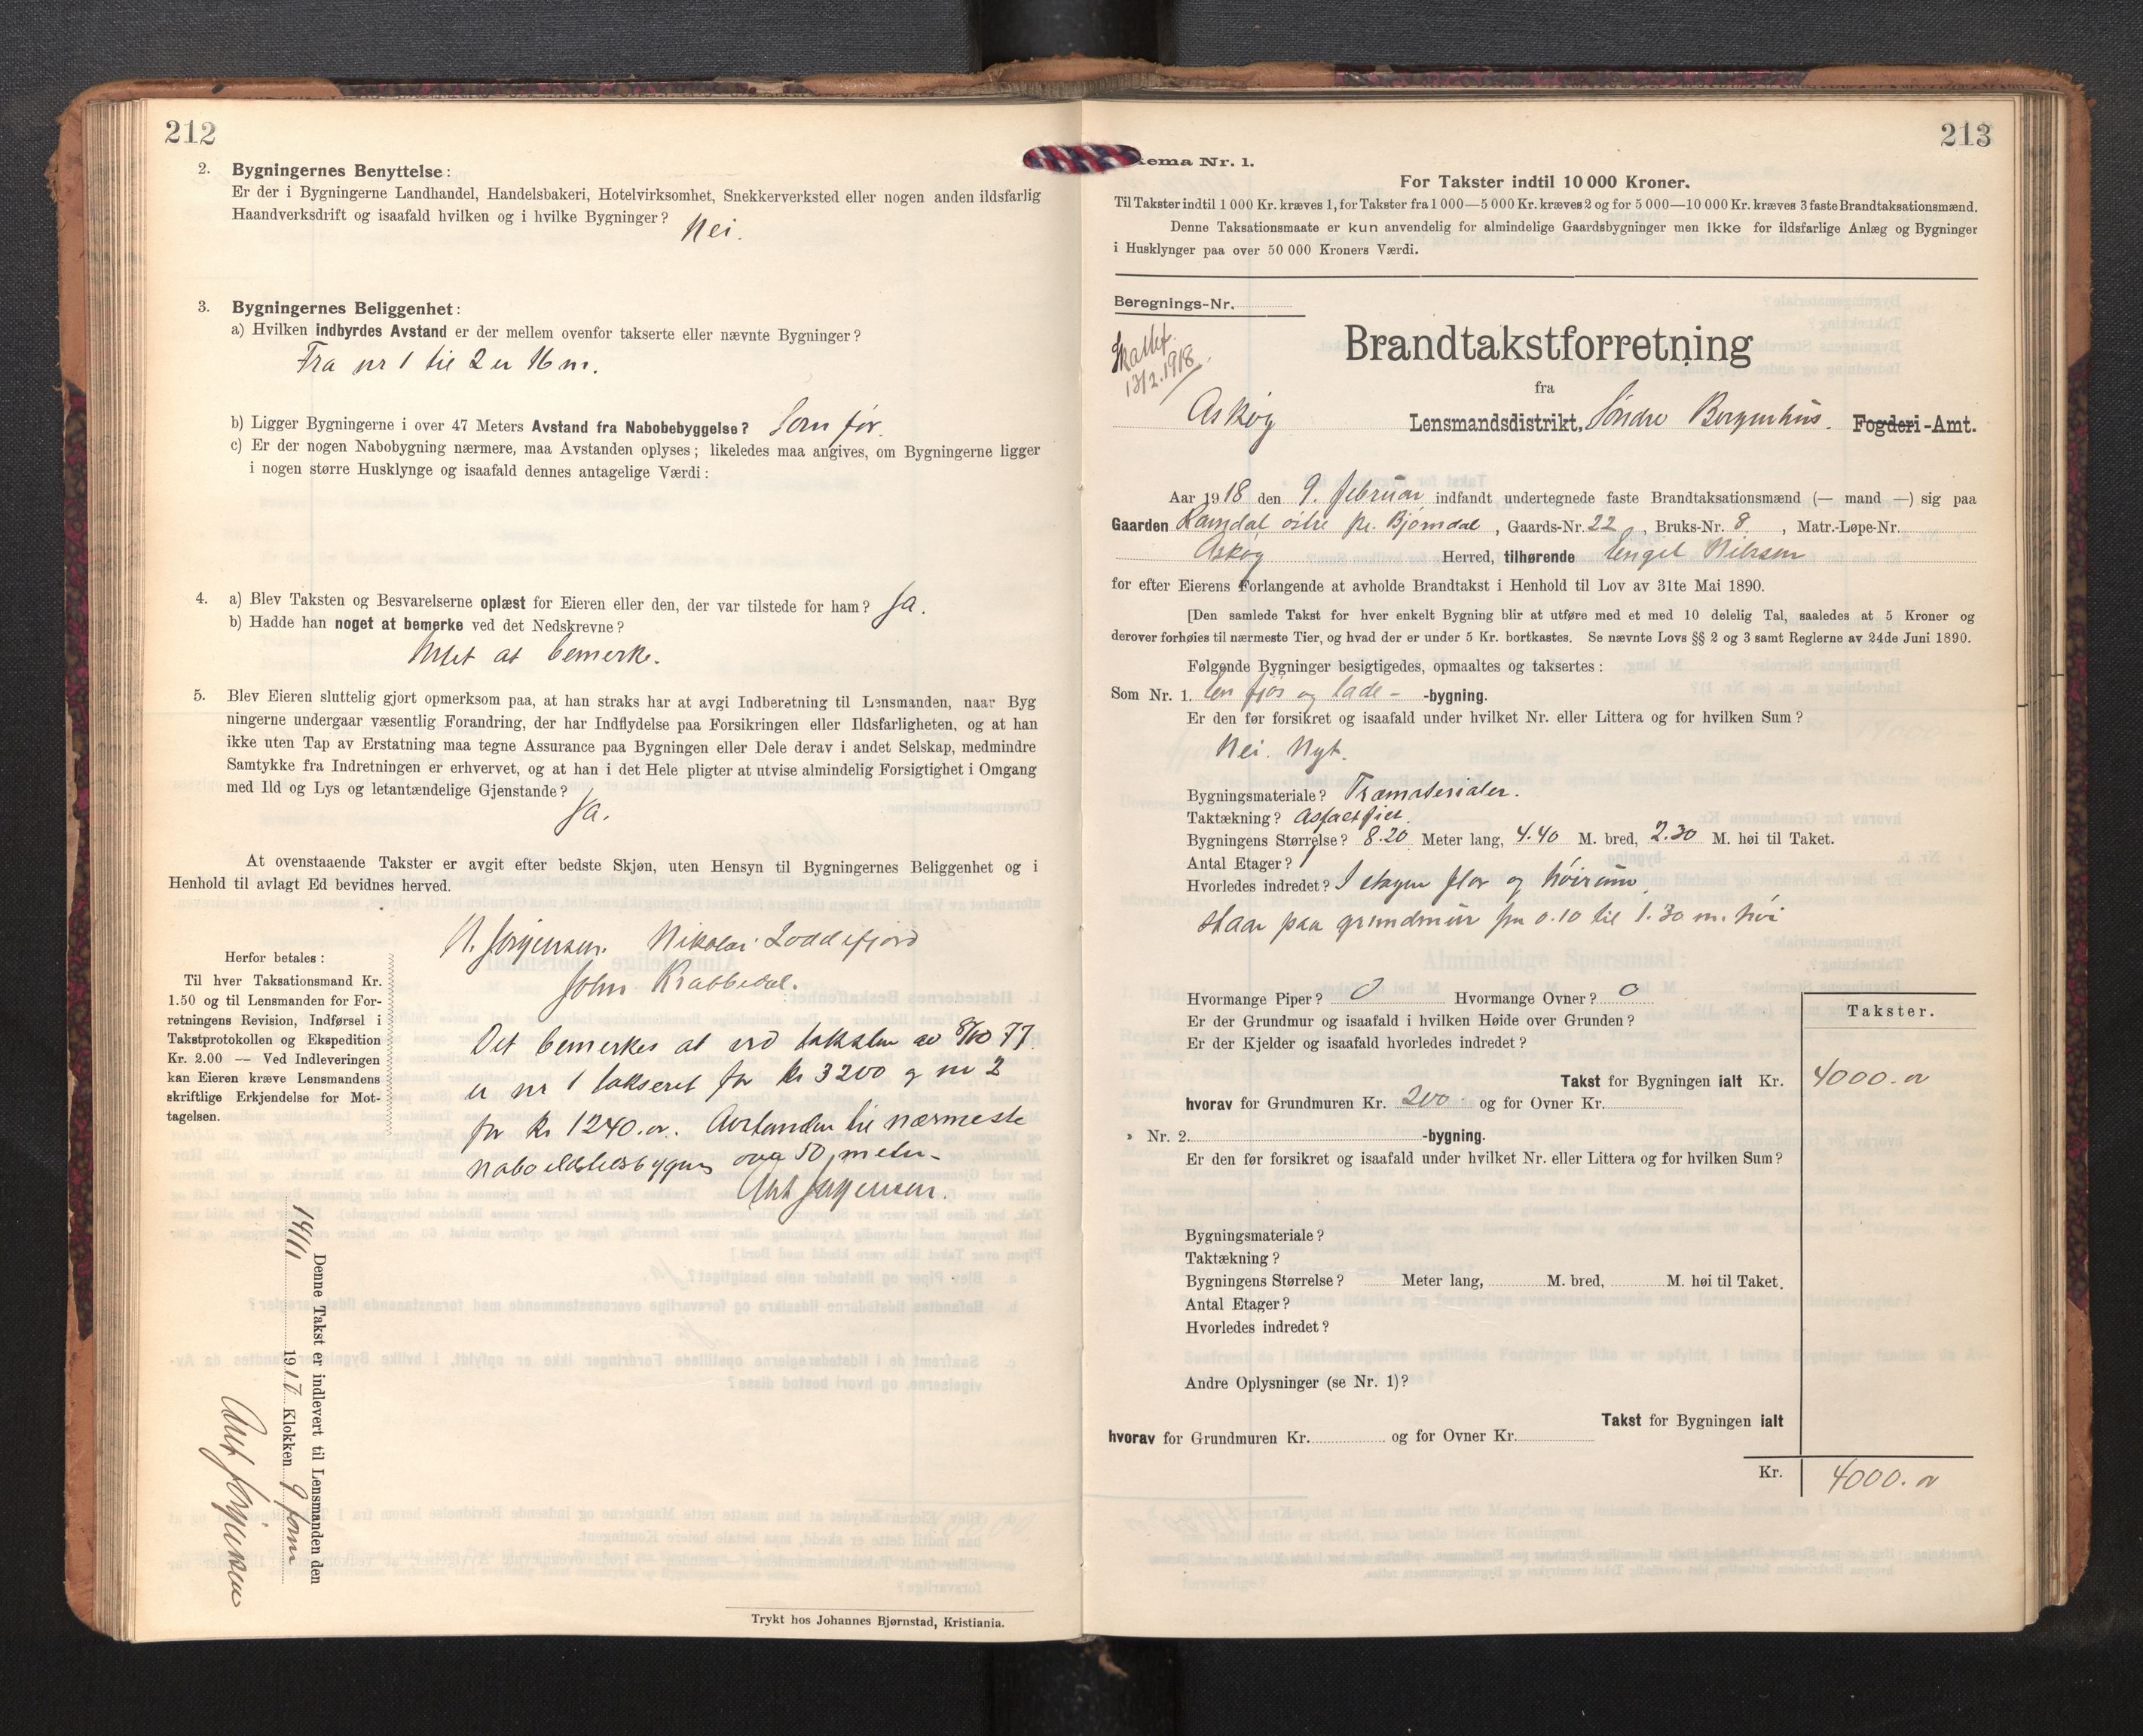 212
2. Bygningernes Benyttelse:
Er der i Bygningerne Landhandel, Handelsbakeri, Hotelvirksomhet, Snekkerverksted eller nogen anden ildsfarlig
Haandverksdrift og isaafald hvilken og i hvilke Bygninger? Nei.
3. Bygningernes Beliggenhet:
a) Hvilken indbyrdes Avstand er der mellem ovenfor takserte eller nævnte Bygninger?
Fra nr 1 til 2 er 16 m.
b) Ligger Bygningerne i over 47 Meters Avstand fra Nabobebyggelse? Som før.
c) Er der nogen Nabobygning nærmere, maa Avstanden oplyses; likeledes maa angives, om Bygningerne ligger
i nogen større Husklynge og isaafald dennes antagelige Værdi:
4. a) Blev Taksten og Besvarelserne oplæst for Eieren eller den, der var tilstede for ham? Ja.
b) Hadde han noget at bemerke ved det Nedskrevne?
Intet at bemerke.
5. Blev Eieren sluttelig gjort opmerksom paa, at han straks har at avgi Indberetning til Lensmanden, naar Byg
ningerne undergaar væsentlig Forandring, der har Indflydelse paa Forsikringen eller Ildsfarligheten, og at han
ikke uten Tap av Erstatning maa tegne Assurance paa Bygningen eller Dele derav i andet Selskap, medmindre
Samtykke fra Indretningen er erhvervet, og at han i det Hele pligter at utvise almindelig Forsigtighet i Omgang
med Ild og Lys og letantændelige Gjenstande?
Ja.
At ovenstaaende Takster er avgit efter bedste Skjøn, uten Hensyn til Bygningernes Beliggenhet og i
Henhold til avlagt Ed bevidnes herved.
N. Jørgensen. Nikolai Loddefjord
John Krabbedal.
Herfor betales:
Til hver Taksationsmand Kr.
1.50 og til Lensmanden for For-
retningens Revision, Indførsel i
Takstprotokollen og Ekspedition
Kr. 2.00 — Ved Indleveringen
kan Eieren kræve Lensmandens
skriftlige Erkjendelse for Mot-
tagelsen.
Det bemerkes at ved taksten av 8/10 77
er nr 1 takseret for kr 3200 og nr 2
for kr 1240.00. Avstanden til nærmeste
over 50 meter.
Ant Jørgensen.
Denne Takst er indlevert til Lensmanden den
14/11 1917 Klokken 9 form
Ant Jørgensen
Trykt hos Johannes Bjørnstad, Kristiania.
213
ema Nr. 1.
For Takster indtil 10 000 Kroner.
Til Takster indtil 1 000 Kr. kræves 1, for Takster fra 1 000—5 000 Kr. kræves 2 og for 5 000—10 000 Kr. kræves 3 faste Brandtaksationsmænd.
Denne Taksationsmaate er kun anvendelig for almindelige Gaardsbygninger men ikke for ildsfarlige Anlæg og Bygninger
i Husklynger paa over 50 000 Kroners Værdi.
Beregnings-Nr.
13/2.1918.
Brandtakstforretning
fra
Askøy Lensmandsdistrikt, Søndre Bergenhus. Fogderi-Amt.
Aar 1918 den 9. februar indfandt undertegnede faste Brandtaksationsmænd (— mand —) sig paa
Gaarden Ramdal østre pr. Bjørndal, Gaards-Nr. 22, Bruks-Nr. 8, Matr.-Løpe-Nr.
Askøy Herred, tilhørende Engel Nilssen
for efter Eierens Forlangende at avholde Brandtakst i Henhold til Lov av 31te Mai 1890.
[Den samlede Takst for hver enkelt Bygning blir at utføre med et med 10 delelig Tal, saaledes at 5 Kroner og
derover forhøies til nærmeste Tier, og hvad der er under 5 Kr. bortkastes. Se nævnte Lovs §§ 2 og 3 samt Reglerne av 24de Juni 1890.
Følgende Bygninger besigtigedes, opmaaltes og taksertes:
Som Nr. 1. En fjøs og lade- -bygning.
Er den før forsikret og isaafald under hvilket Nr. eller Littera og for hvilken Sum?
Nei. Nyt.
Bygningsmateriale? Træmaterialer.
Taktækning? Asfaltfilt.
Bygningens Størrelse? 8.20 Meter lang, 4.40 M. bred, 2.30 M. høi til Taket.
Antal Etager? 1
Hvorledes indredet? I etagen flor og høirum.
staar paa grundmur fra 0.10 til 1.30 m. høi
Hvormange Piper? 0 Hvormange Ovner? 0
Er der Grundmur og isaafald i hvilken Høide over Grunden?
Er der Kjelder og isaafald hvorledes indredet?
Takster.
Takst for Bygningen ialt Kr. 4000.00
hvorav for Grundmuren Kr. 200 og for Ovner Kr.
» Nr. 2. -bygning.
Er den før forsikret og isaafald under hvilket Nr. eller Littera og for hvilken Sum?
Bygningsmateriale?
Taktækning?
Bygningens Størrelse? Meter lang, M. bred, M. høi til Taket.
Antal Etager?
Hvorledes indredet?
Andre Oplysninger (se Nr. 1)?
Takst for Bygningen ialt
hvorav for Grundmuren Kr. og for Ovner Kr.
Kr. 4000.00